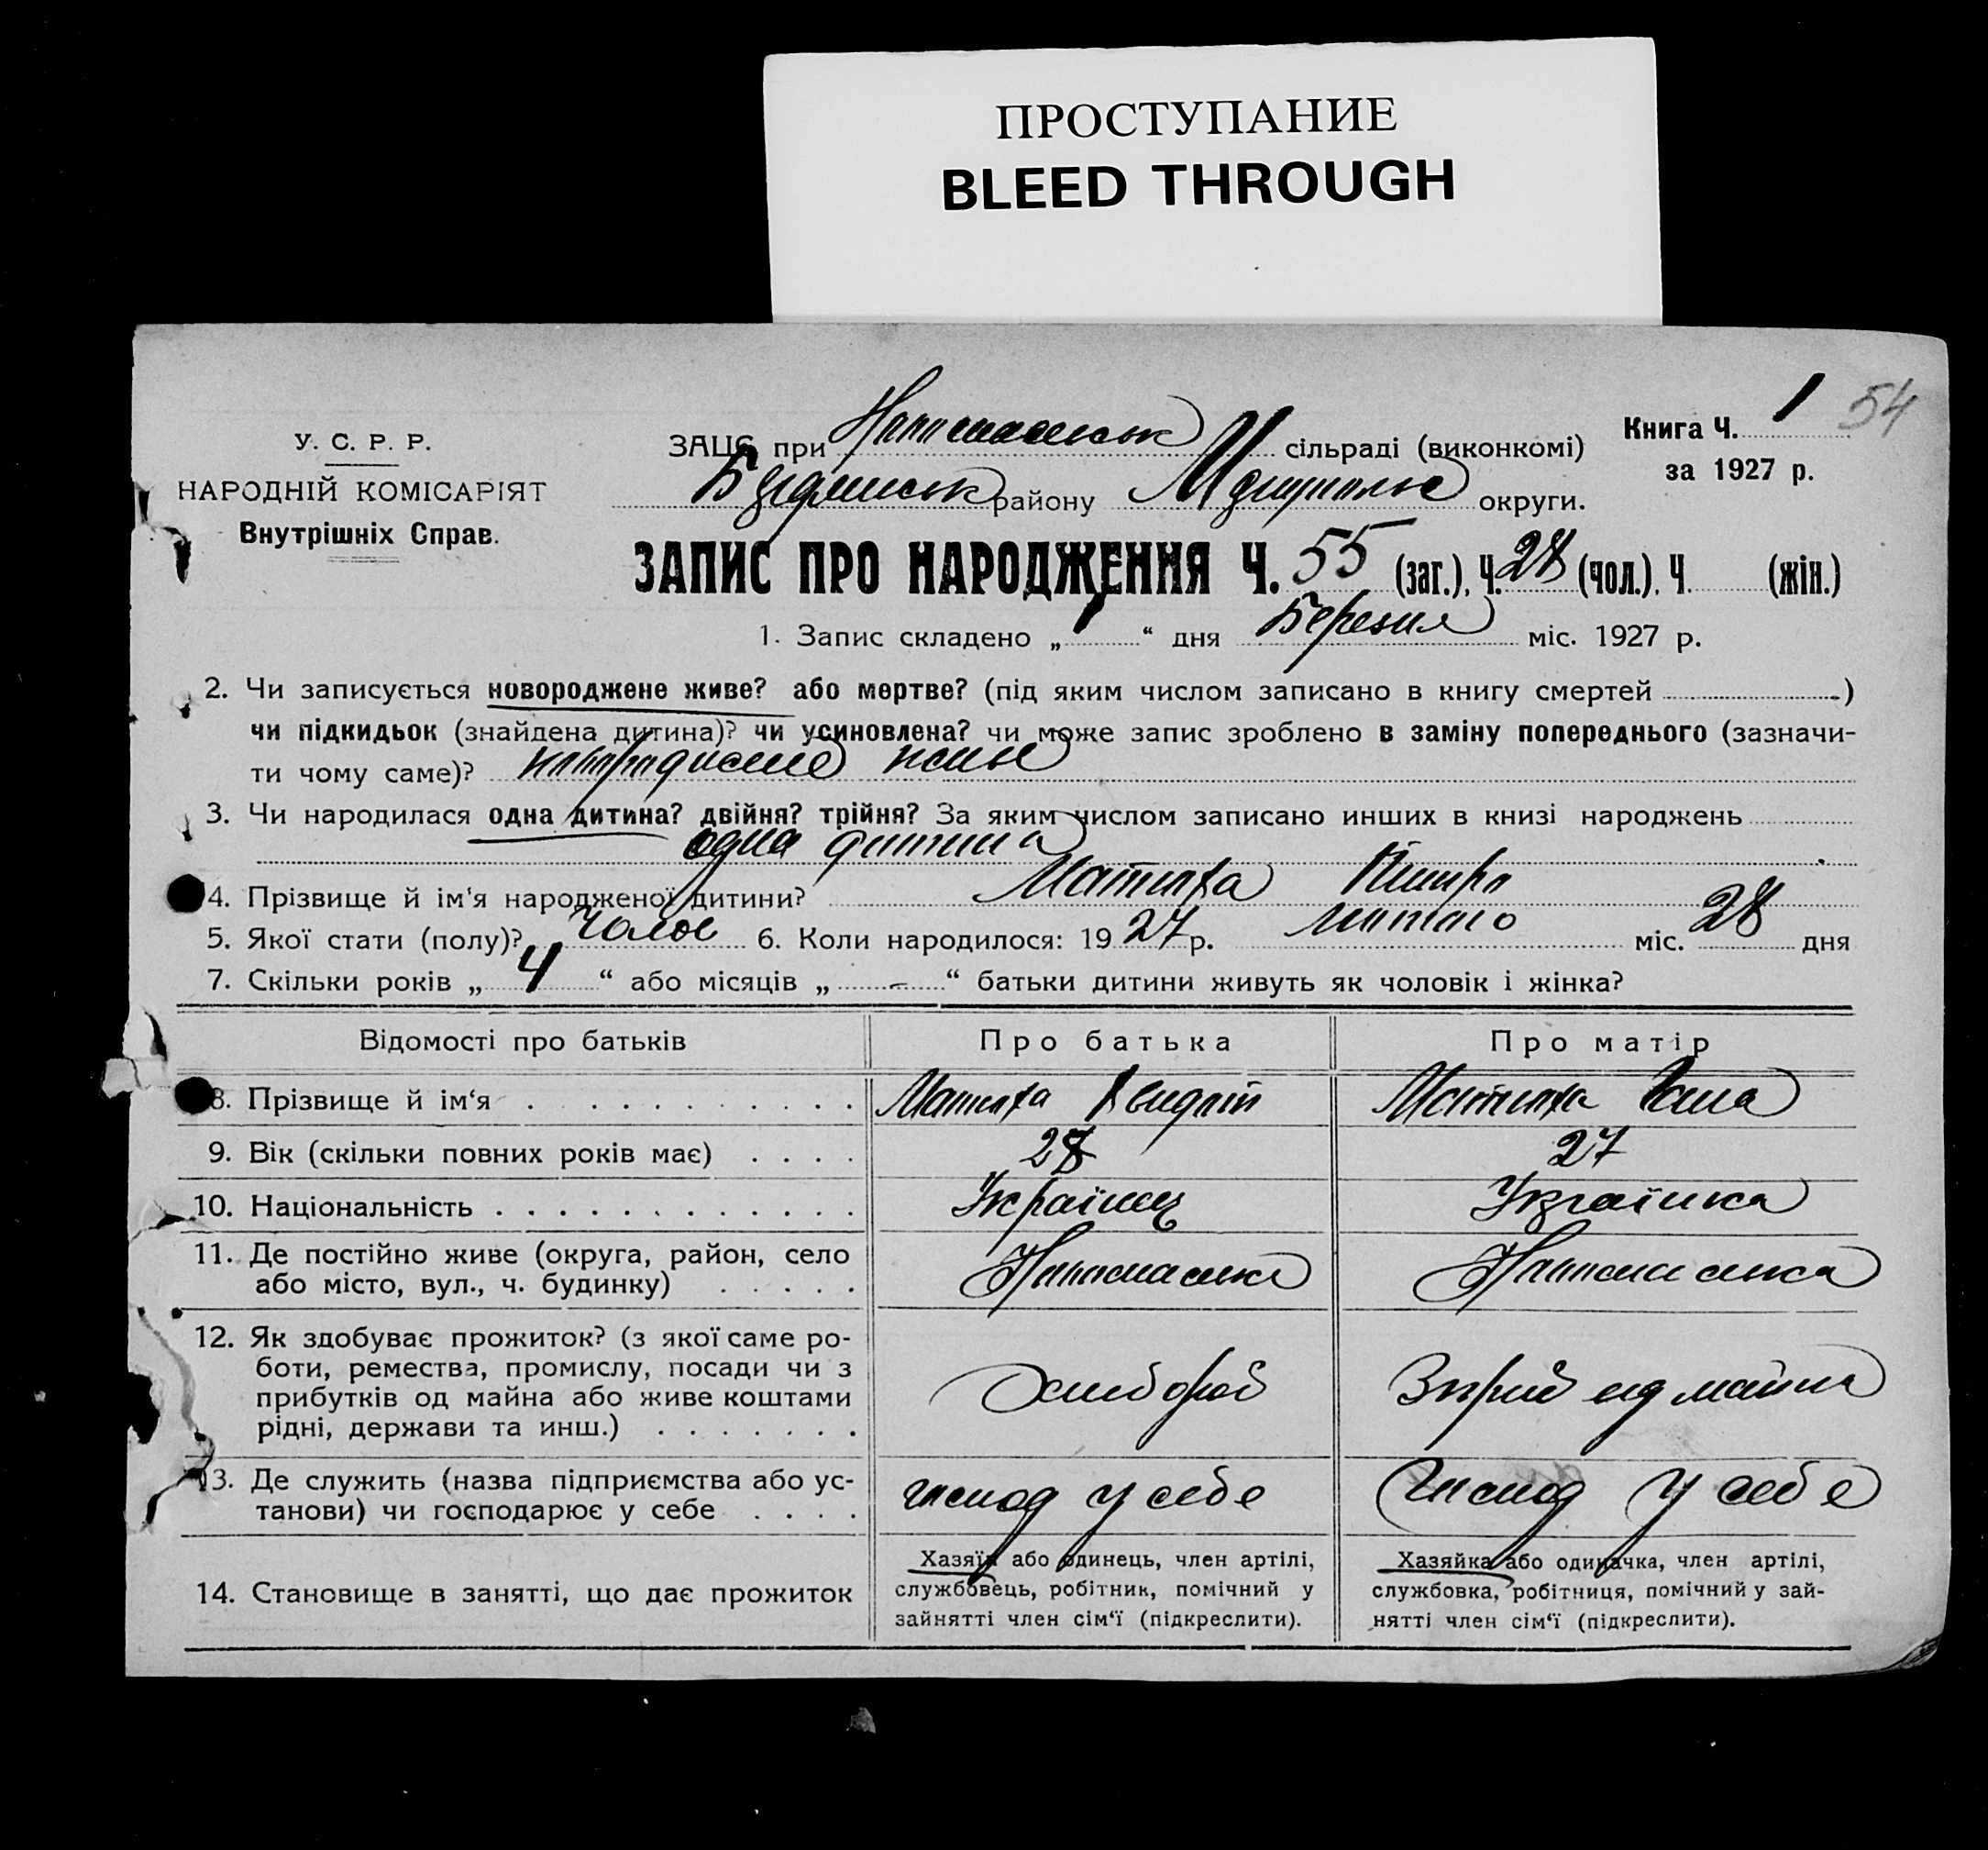 ПРОСТУПАНИЕ
BLEED THROUGH
1 54
У. С. Р. Р.
НАРОДНІЙ КОМІСАРІЯТ
Внутрішніх Справ.
ЗАЦС при сільраді (виконкомі)
Книга Ч.
за 1927 р.
району округи.
ЗАПИС ПРО НАРОДЖЕННЯ Ч. 55 (заг.), Ч. 28 (чол.), Ч. (жін.)
1. Запис складено „ 1 “ дня Березня міс. 1927 р.
2. Чи записується новороджене живе? або мертве? (під яким числом записано в книгу смертей )
чи підкидьок (знайдена дитина)? чи усиновлена? чи може запис зроблено в заміну попереднього (зазначи-
ти чому саме)?
3. Чи народилася одна дитина? двійня? трійня? За яким числом записано инших в книзі народжень
одна дитина
4. Прізвище й ім'я народженої дитини?
5. Якої стати (полу)? Чолов 6. Коли народилося: 19 27 р. лютого міс. 28 дня
7. Скільки років „ 4 “ або місяців „ - “ батьки дитини живуть як чоловік і жінка?
Відомості про батьків Про батька Про матір
8. Прізвище й ім‘я
9. Вік (скільки повних років має) 28 27
10. Національність Українец Українка
11. Де постійно живе (округа, район, село
або місто, вул., ч. будинку)
12. Як здобуває прожиток? (з якої саме ро-
боти, ремества, промислу, посади чи з
прибутків од майна або живе коштами
рідні, держави та инш.) Хлібороб майна
13. Де служить (назва підприємства або ус-
танови) чи господарює у себе господ у себе господ у себе
14. Становище в занятті, що дає прожиток
Хазяїн або одинець, член артілі,
службовець, робітник, помічний у
зайнятті член сім‘ї (підкреслити).
Хазяйка або одиначка, член артілі,
службовка, робітниця, помічний у зай-
нятті член сім‘ї (підкреслити).